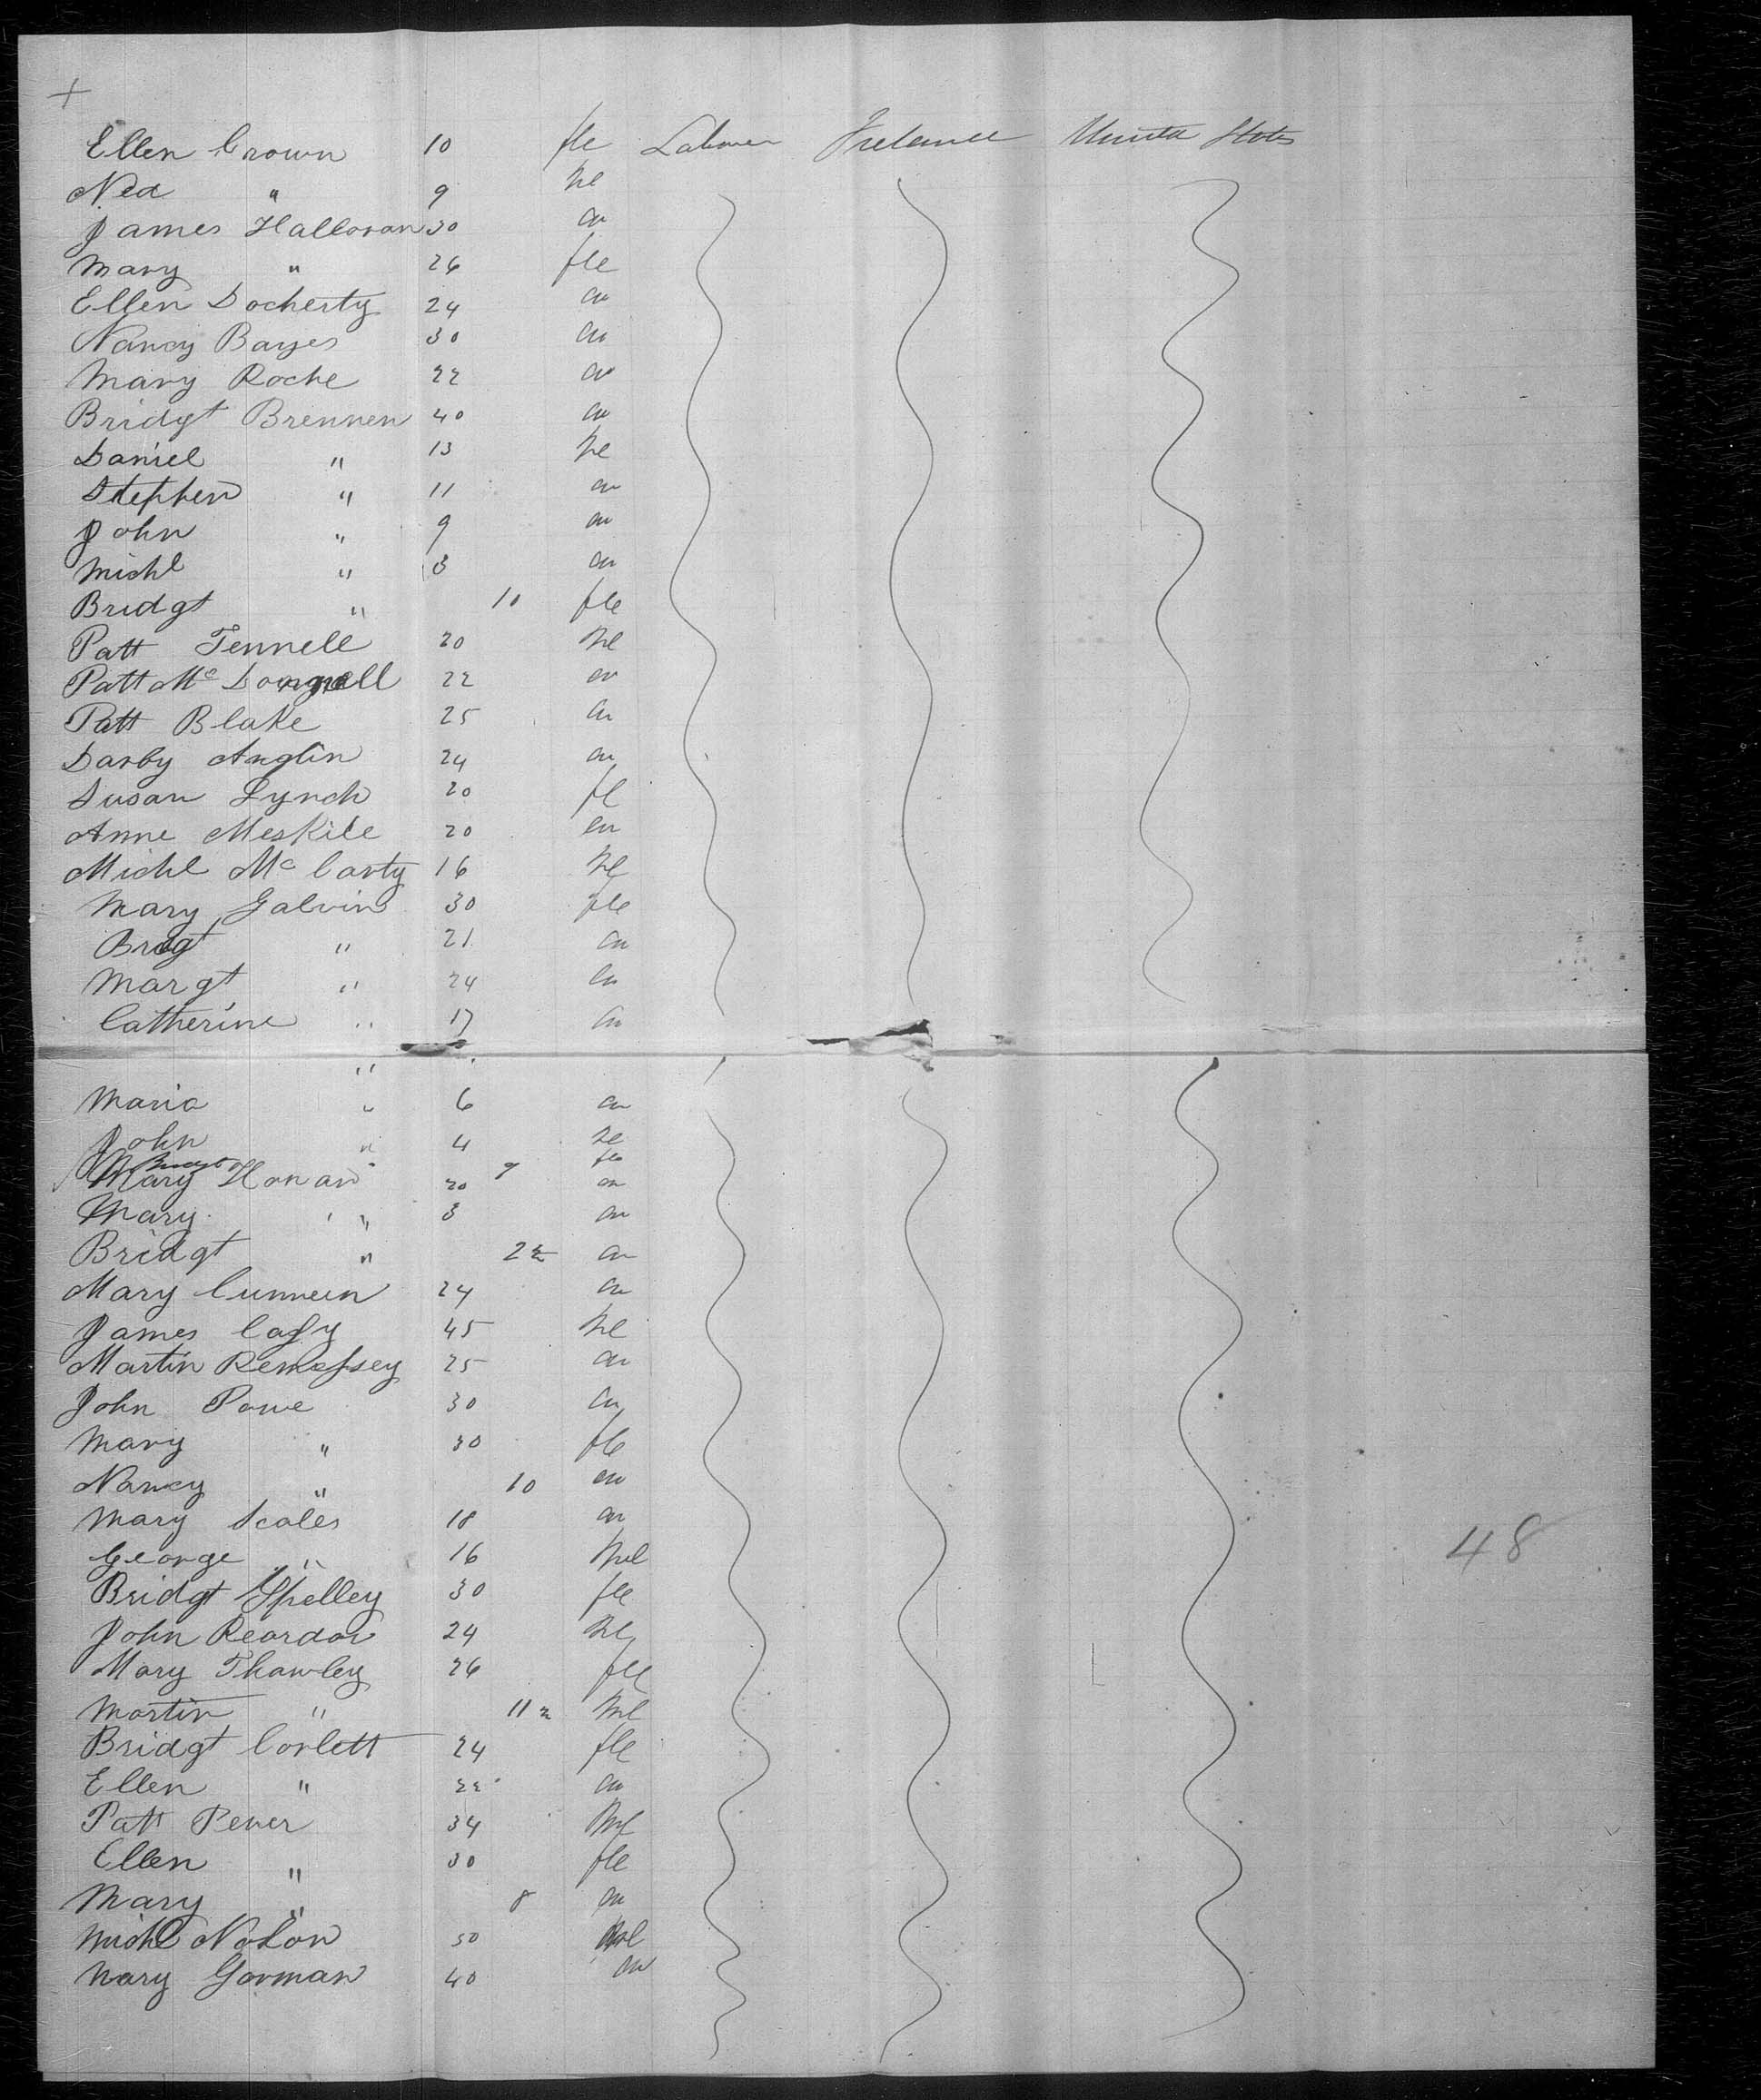 +
Ellen Crown 10 fle Labourer Ireland United States
Ned " 9 Ml
James Halloran 30 do
Mary " 26 fle
Ellen Docherty 24 do
Nancy Bayes 30 do
Mary Roche 22 do
Bridgt Brennen 40 do
Daniel " 13 Ml
Stephen " 11 do
John " 9 do
Michl " 3 do
Bridgt " 10 fle
Patt Fennell 20 Ml
Patt Mc 22 do
Patt Blake 25 do
Darby Anglin 24 do
Susan Lynch 20 fl
Anne Meskile 20 do
Michl Mc Carty 16 Ml
Mary Galvin 30 fle
Bridgt " 21 do
Margt " 24 do
Catherine " 17 do
"
Maria " 6 do
John " 4 Ml
Bridgt " 9 fle
Mary Honan 20 do
Mary " 3 do
Bridgt " 2 do
Mary Cunneen 24 do
James 45 Ml
Martin 25 do
John Powe 30 do
Mary " 30 fle
Nancy " 10 do
Mary Scales 18 do
George " 16 Ml
Bridgt Spelley 30 fle
John Reardon 24 Ml
Mary Thawley 26 fle
Martin " 11 Ml
Bridgt Corlett 24 fle
Ellen " 22 do
Patt Pener 34 Ml
Ellen " 30 fle
Mary " 8 do
Michl Nolon 50 Ml
Mary Gorman 40 do
48